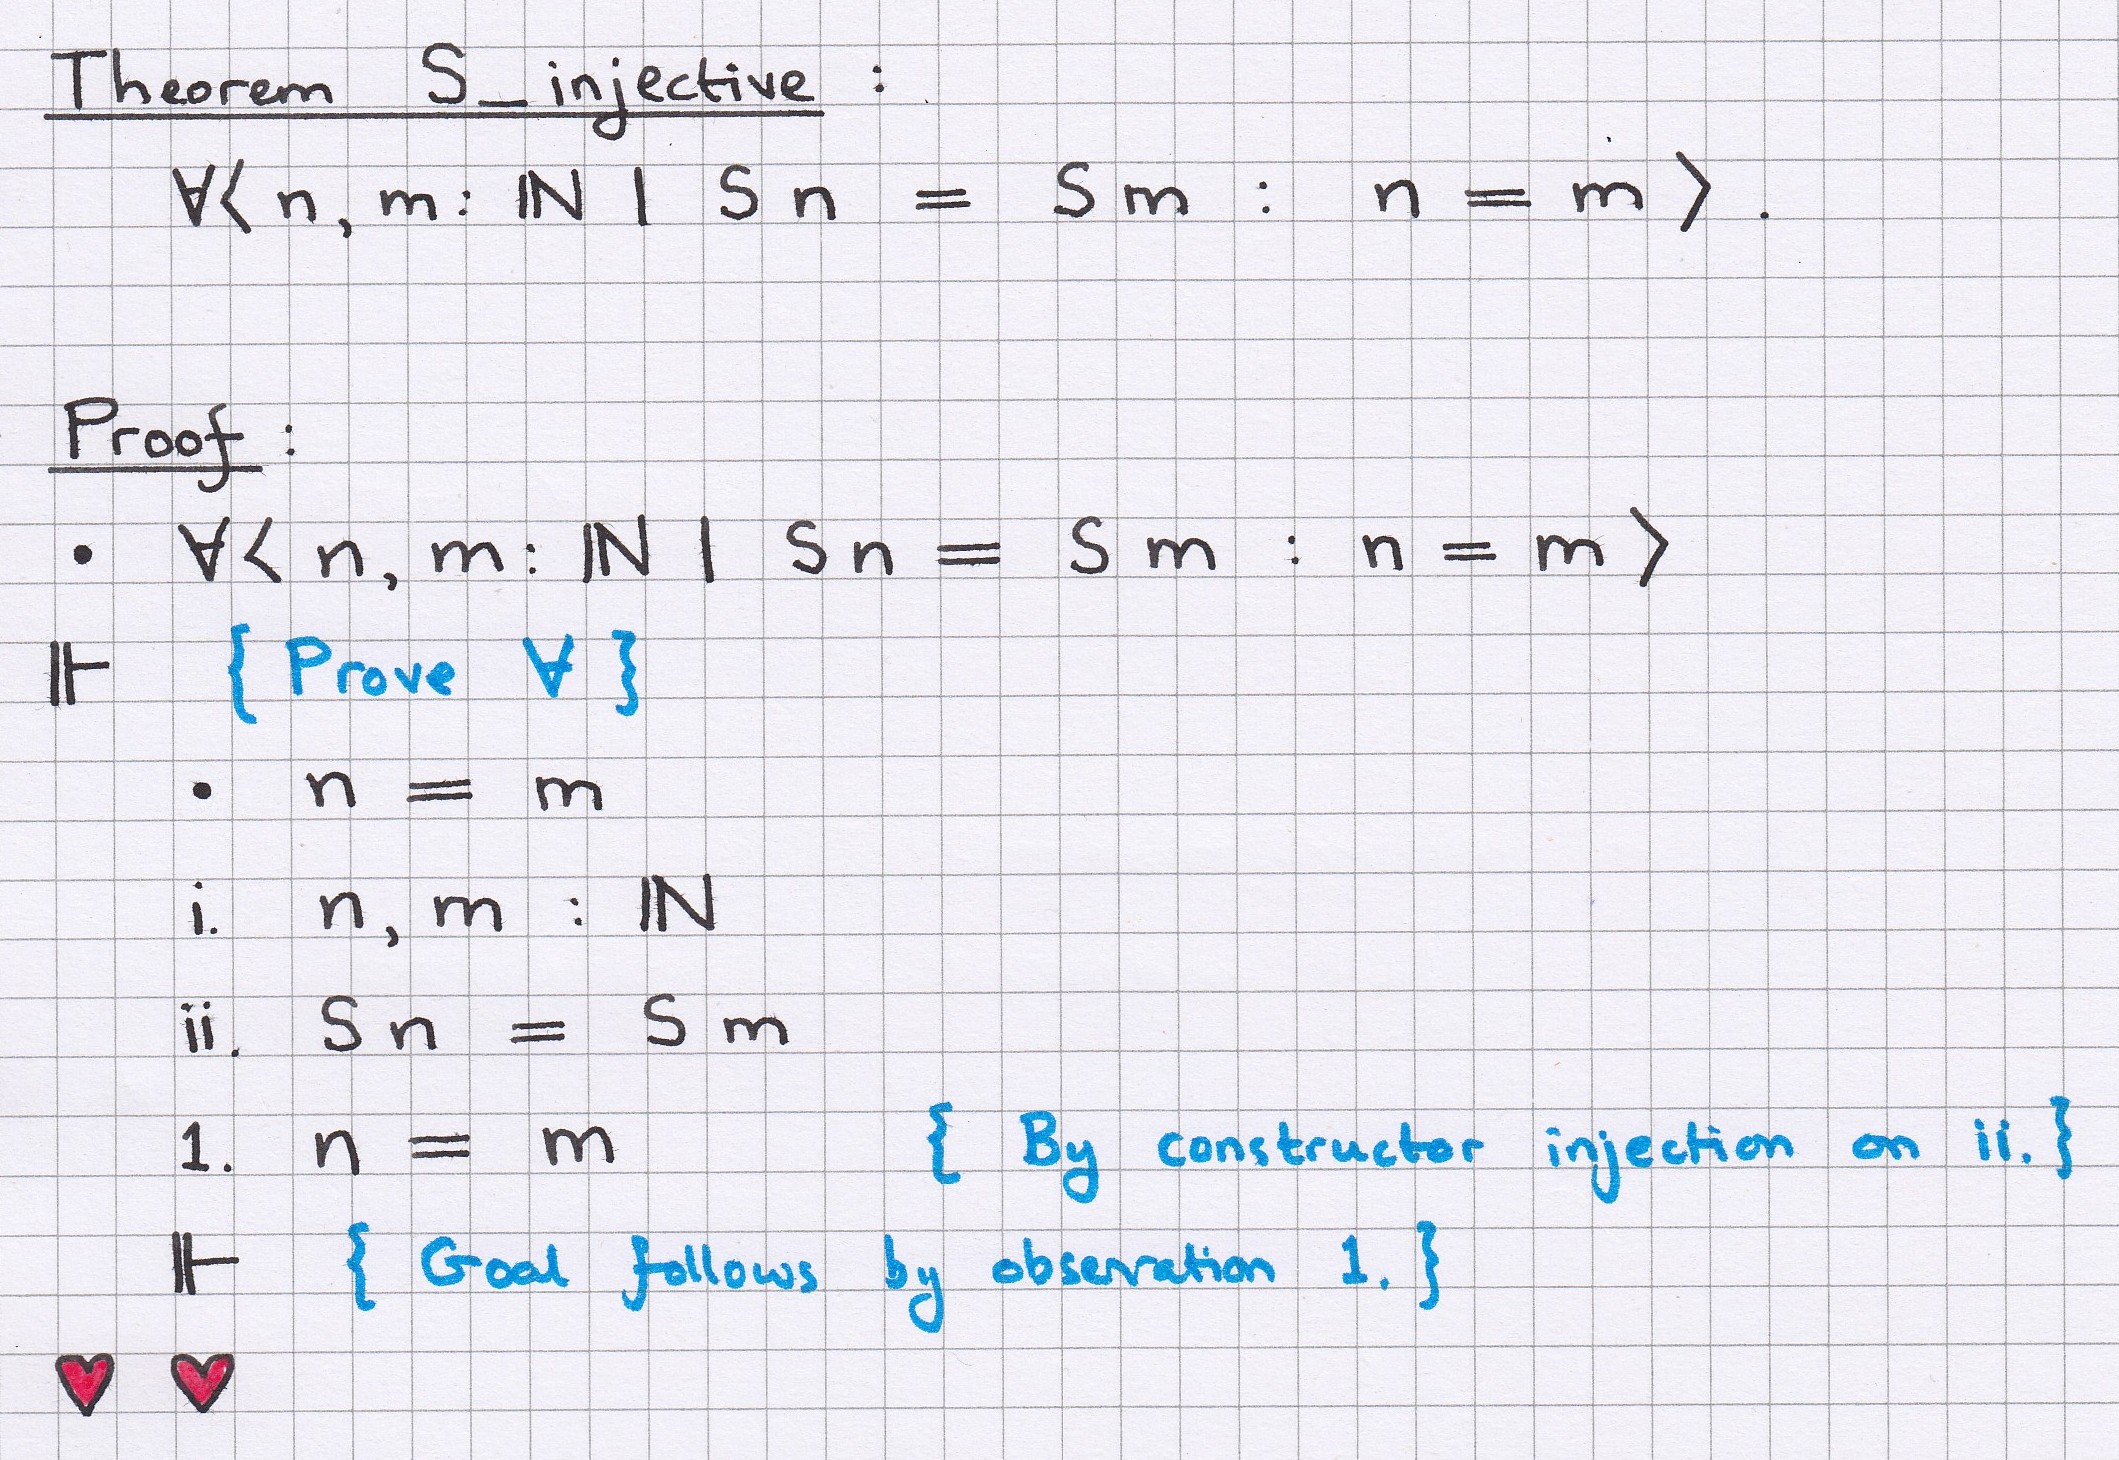 Theorem S_injective :
∀⟨ n, m: ℕ | S n = S m : n = m ⟩ .
Proof :
• ∀⟨ n, m: ℕ | S n = S m : n = m ⟩
⊩ { Prove ∀ }
• n = m
i. n, m : ℕ
ii. S n = S m
1. n = m { By constructor injection on ii. }
⊩ { Goal follows by observation 1. }
♥ ♥